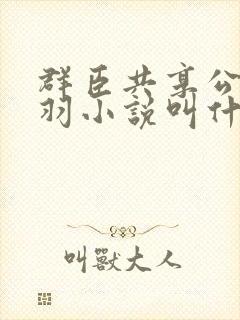 群臣共享公
羽小說叫什
叫獸大人